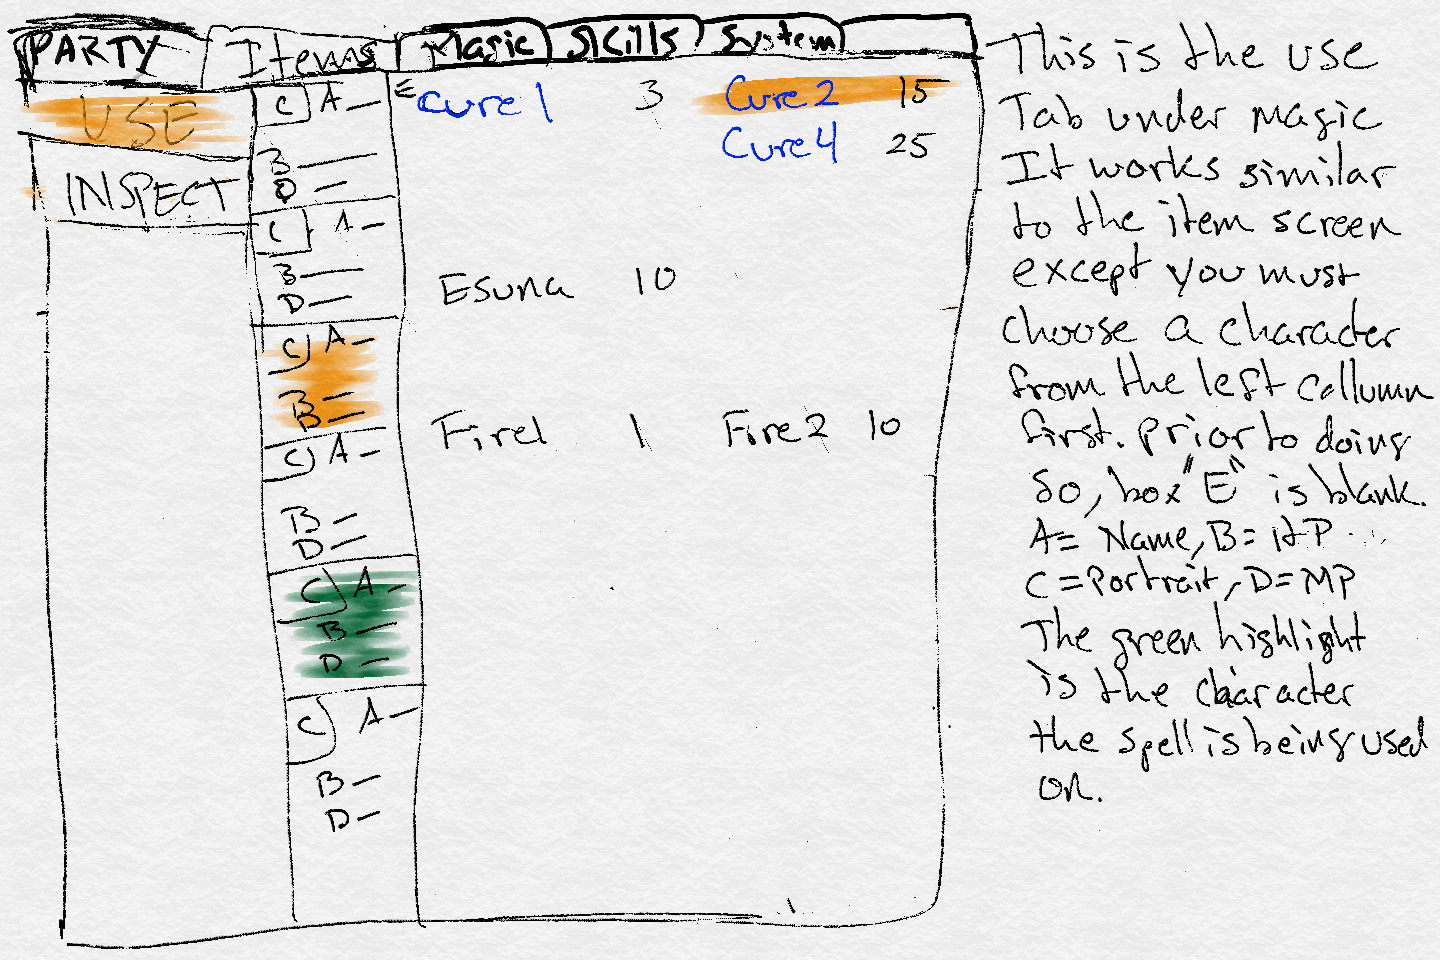 PARTY Items Magic Skills System
USE
INSPECT
C A
B
D
C A
B
D
C A
B
B
C A
B
D
C A
B
D
C A
B
D
E
Cure 1 3 Cure 2 15
Cure 4 25
Esuna 10
Fire1 1 Fire 2 10
This is the use
Tab under magic
It works similar
to the item screen
except you must
choose a character
from the left callumn
first. prior to doing
so, box "E" is blank.
A= Name, B= HP
C = Portrait, D= MP
The green highlight
is the character
the spell is being used
on.